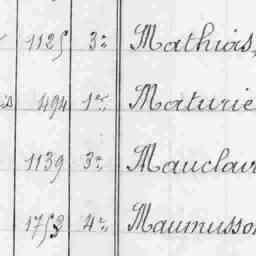 1125 3e Mathias,
494 1er Maturie
1139 3e Mauclair
1753 4e Maumusson